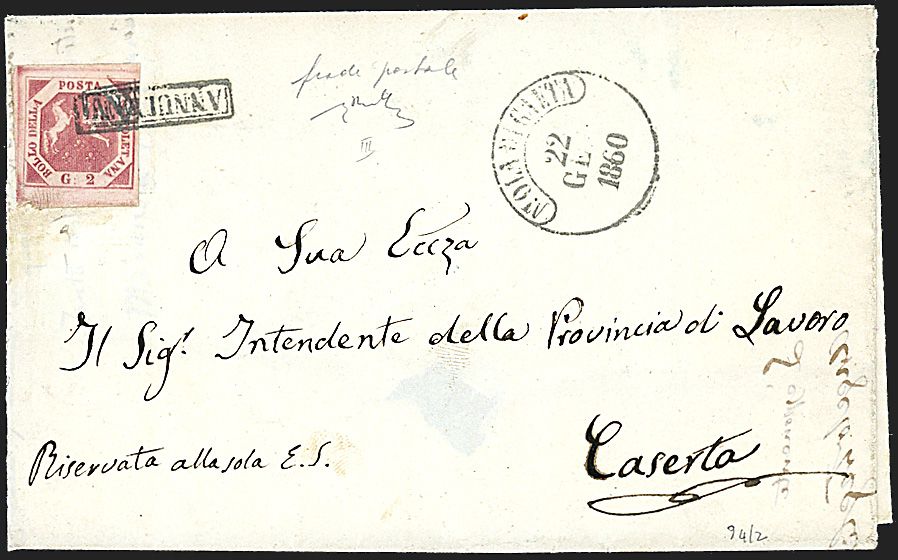 POSTA NAPOLETANA
BOLLO DELLA
G. 2
ANNULLATO
frode postale
III
MOLA DI GAETA
22
GE
1860
A Sua Eccza
Il Sigr. Intendente della Provincia di Lavoro
Riservata alla sola E. S.
Caserta
94/2